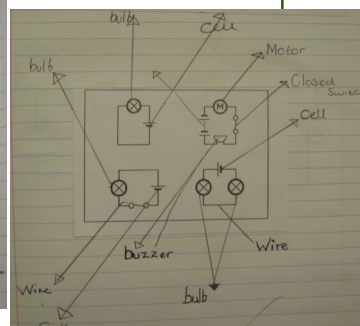 bulb
Cell
Motor
bulb
Closed
Switch
Cell
M
buzzer
Wire
Wire
bulb